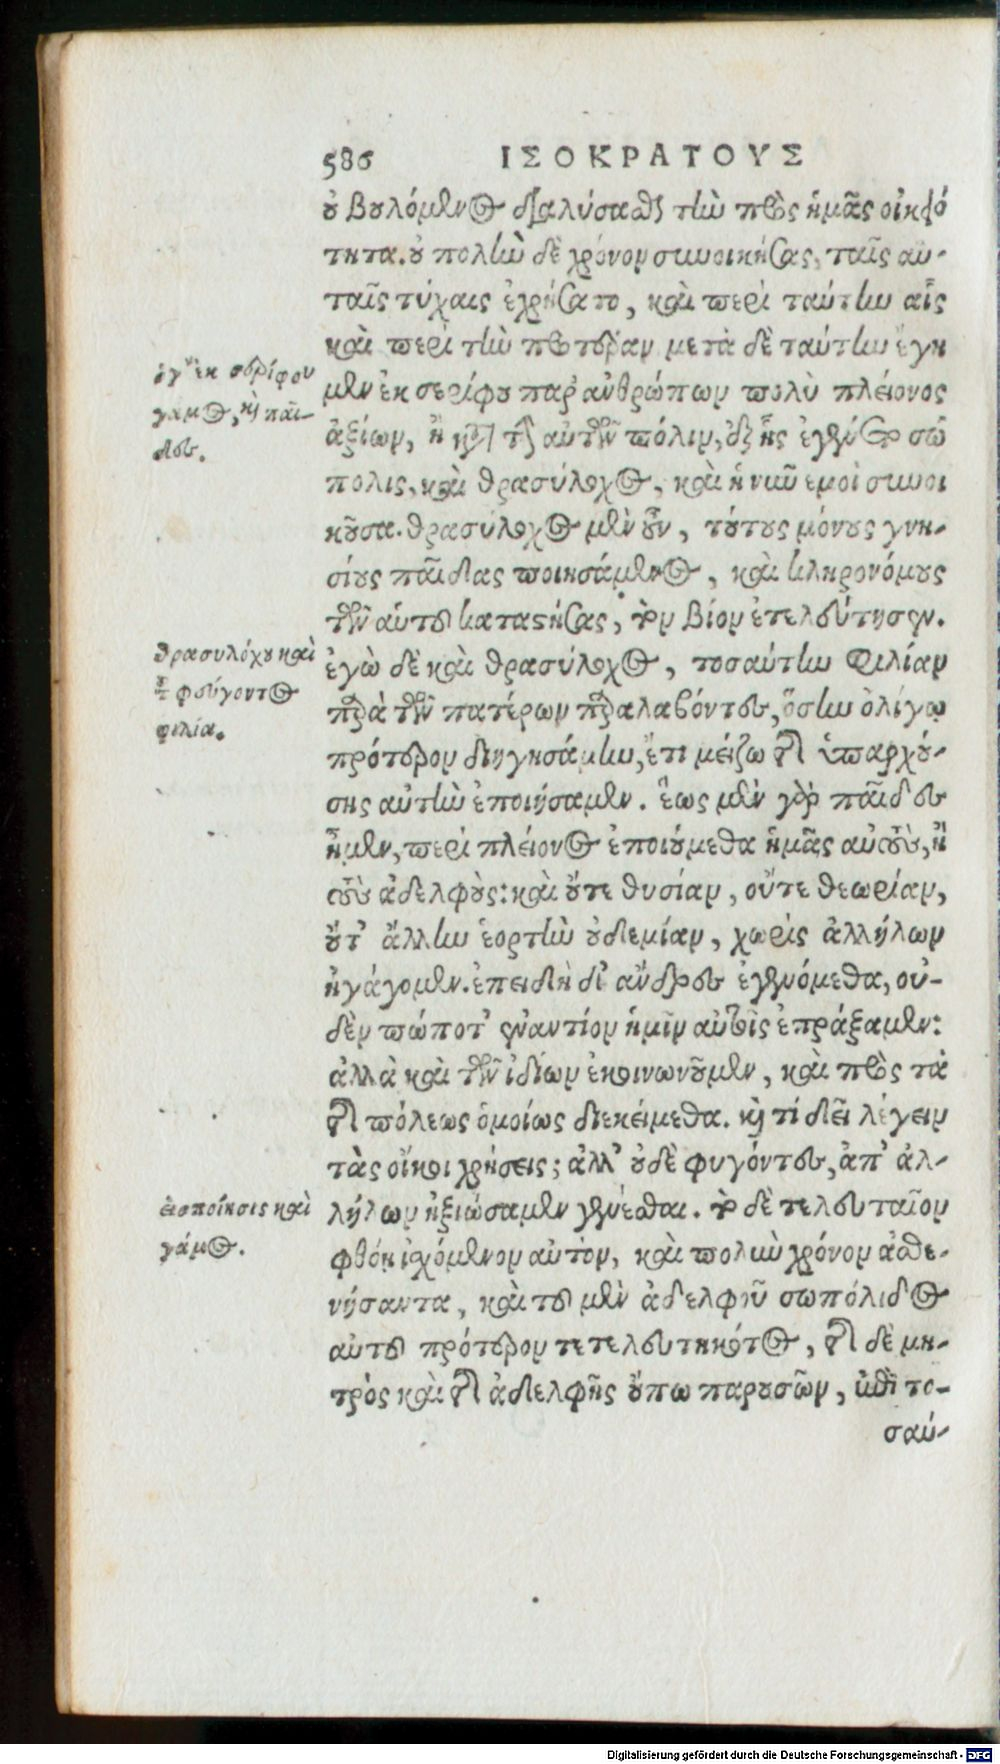 586 ΙΣΟΚΡΑΤΟΥΣ
οὐ βουλόμενος διαλύσασθαι τὴν πρὸς ἡμᾶς οἰκειό
τητα. οὐ πολὺν δὲ χρόνον συνοικήσας, ταῖς αὐ-
ταῖς τύχαις ἐχρήσατο, καὶ περὶ ταύτην αἷς
καὶ περὶ τὴν προτέραν. μετὰ δὲ ταύτην ἔγη
μεν ἐκ σερίφου παρ' ἀνθρώπων πολὺ πλείονος
ἀξίων, ἢ κατὰ τὴν αὐτῶν πόλιν, ἐξ ἧς ἐγένετο σώ
πολις, καὶ θρασύλοχος, καὶ ἡ νῦν ἐμοὶ συνοι
κοῦσα. θρασύλοχος μὲν οὖν, τούτους μόνους γνη-
σίους παῖδας ποιησάμενος, καὶ κληρονόμους
τῶν αὑτοῦ καταστήσας, τὸν βίον ἐτελεύτησεν.
ἐγὼ δὲ καὶ θρασύλοχος, τοσαύτην φιλίαν
παρὰ τῶν πατέρων παραλαβόντες, ὅσην ὀλίγῳ
πρότερον διηγησάμην, ἔτι μείζω τῆς ὑπαρχού-
σης αὐτὴν ἐποιήσαμεν. ἕως μὲν γὰρ παῖδες
ἦμεν, περὶ πλείονος ἐποιούμεθα ἡμᾶς αὐτοὺς, ἢ
τοὺς ἀδελφούς: καὶ οὔτε θυσίαν, οὔτε θεωρίαν,
οὔτ' ἄλλην ἑορτὴν οὐδεμίαν, χωρὶς ἀλλήλων
ἠγάγομεν. ἐπειδὴ δ' ἄνδρες ἐγενόμεθα, οὐ-
δὲν πώποτ' ἐναντίον ἡμῖν αὐτοῖς ἐπράξαμεν:
ἀλλὰ καὶ τῶν ἰδίων ἐκοινωνοῦμεν, καὶ πρὸς τὰ
τῆς πόλεως ὁμοίως διεκείμεθα. καὶ τί δεῖ λέγειν
τὰς οἴκοι χρήσεις; ἀλλ' οὐδὲ φυγόντες, ἀπ' ἀλ-
λήλων ἠξιώσαμεν γενέσθαι. τὸ δὲ τελευταῖον
φθόῃ ἰχόμενον αὐτὸν, καὶ πολὺν χρόνον ἀσθε-
νήσαντα, καὶ τοῦ μὲν ἀδελφοῦ σωπόλιδος
αὐτοῦ πρότερον τετελευτηκότος, τῆς δὲ μη-
τρὸς καὶ τῆς ἀδελφῆς οὔπω παρουσῶν, μετὰ το-
σαύ-
ὁ γ' ἐκ σερίφου
γάμος, καὶ παῖ-
δες.
θρασυλόχου καὶ
τοῦ φεύγοντος
φιλία.
εἰσποίησις καὶ
γάμος.
Digitalisierung gefördert durch die Deutsche Forschungsgemeinschaft - DFG